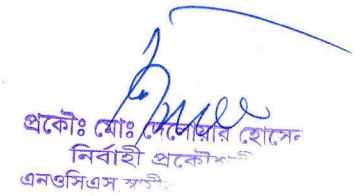 প্রকৌঃ মোঃ দেলোয়ার হোসেন
নির্বাহী প্রকৌশলী
এনওসিএস